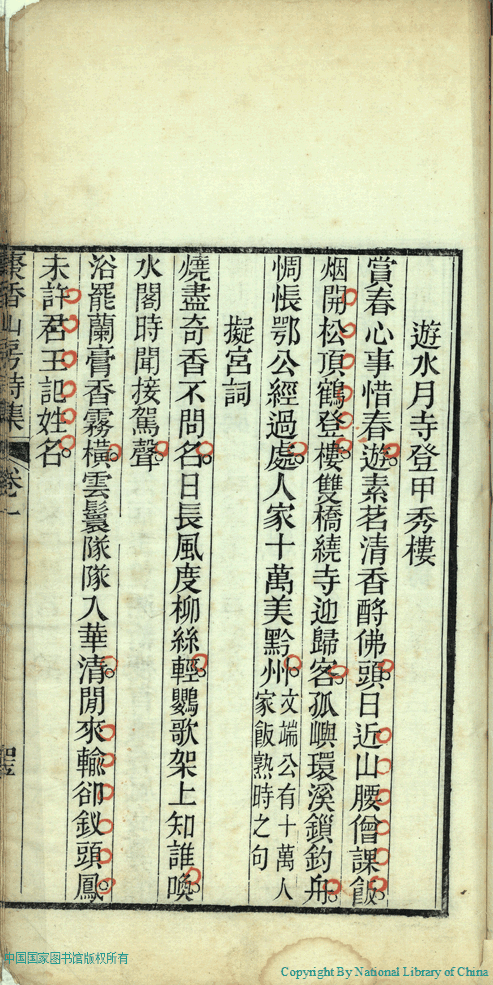 遊水月寺登甲秀樓
賞春心事惜春遊素茗清香酹佛頭日近山腰僧課飯
烟開松頂鶴登樓雙橋繞寺迎歸客孤嶼環溪鎖釣舟
惆悵鄂公經過處人家十萬美黔州文端公有十萬人
家飯熟時之句
擬宮詞
燒盡奇香不問名日長風度柳絲輕鸚歌架上知誰喚
水閣時聞接駕聲
浴罷蘭膏香霧橫雲鬟隊隊入華清閒來輸卻釵頭鳳
未許君王記姓名
香山房詩集
卷一
中国国家图书馆版权所有
Copyright By National Library of China